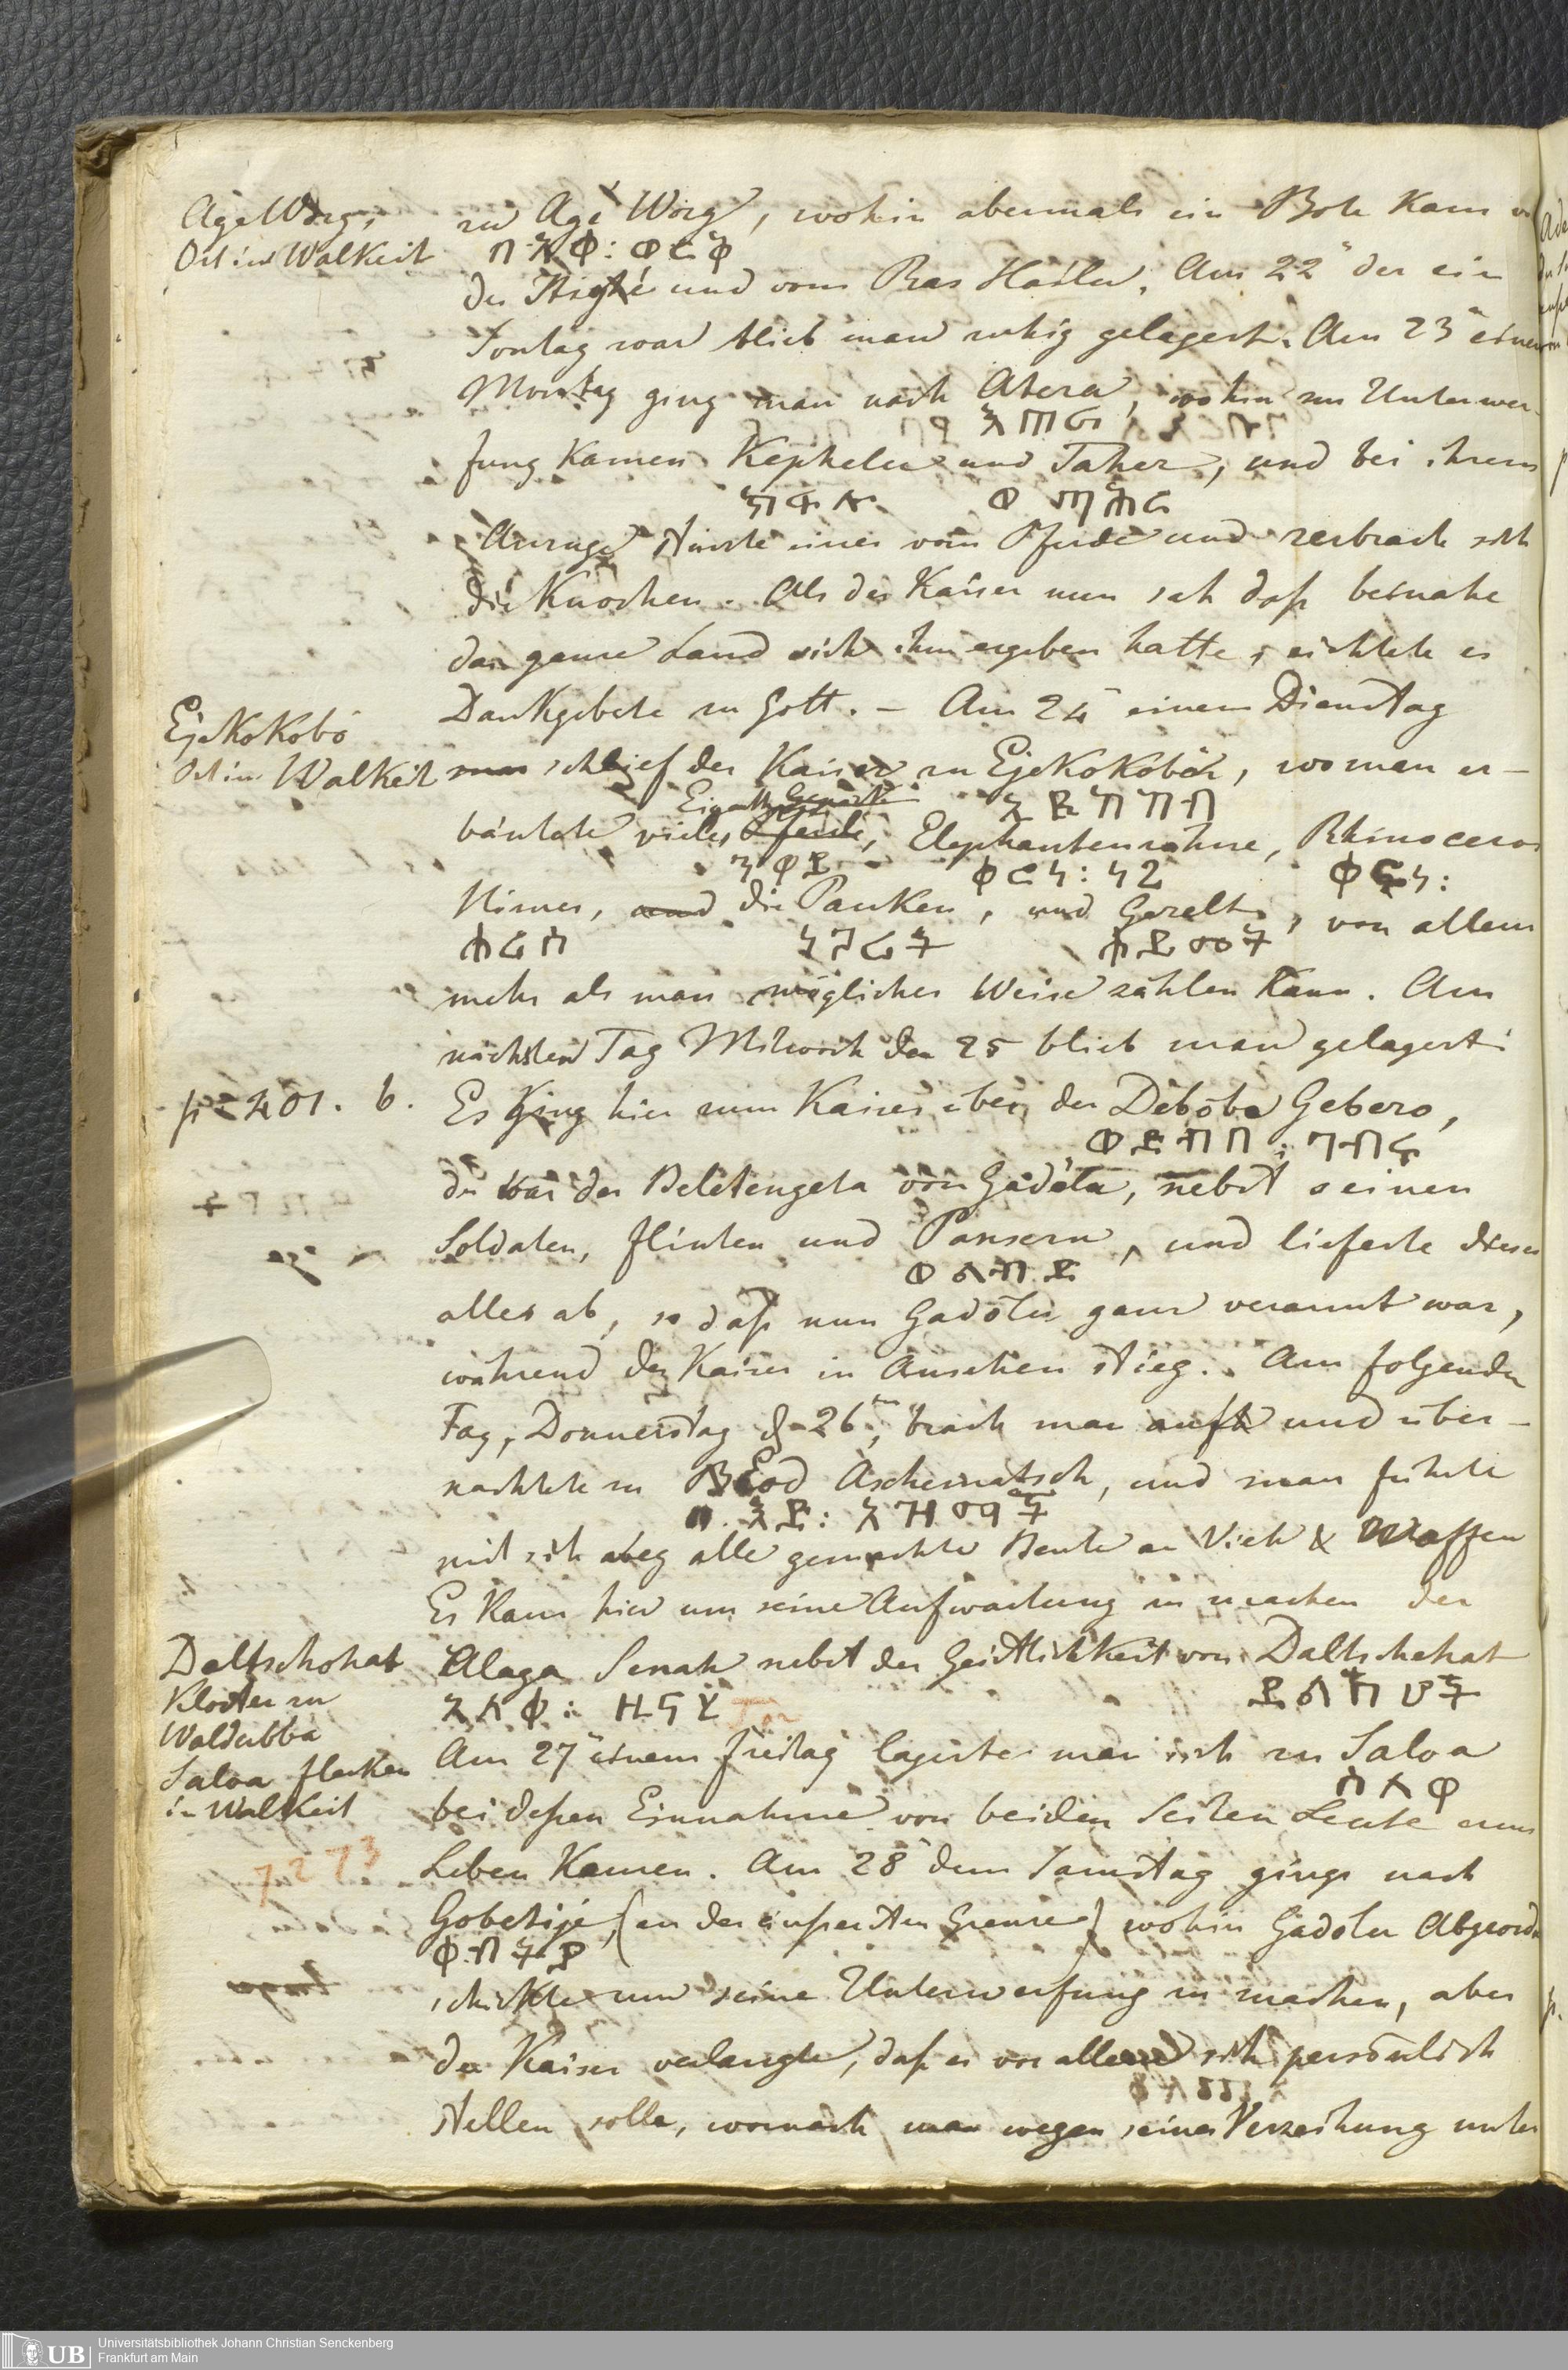 Age Worg,
Ort in Walkeit
zu Age Worg, wohin abermals ein Bote kam
በአቀ: ወርቅ
der Itighé und vom Ras Hailu. Am 22" der ein
Sontag war blieb man ruhig gelagert. Am 23" einem
Montag ging man nach Atera, wohin zur Unterwer-
አጠራ
fung kamen Kepheler und Taher, und bei ihrem
ወ ጣሕር
Anzuge stürzte einer vom Pferde und zerbrach sich
die Knochen. Als der Kaiser nun sah daß beinahe
das ganze Land sich ihm ergeben hatte, richtete er
Dankgebete zu Gott. – Am 24" einem Dienstag
Ejekokobó
Ort in Walkeit
schlief der Kaiser zu Ejekokobór, wo man er-
beutete vieles Pferde, Elephantenzähne, Rhinoceros
ንዋይ ቀርነ: ነጌ ቀርነ:
Hörner, und die Pauken, und Gezelte, von allem
ሐሪስ ነጋሪት ሐይመት
mehr als man möglicher Weise zählen kann. Am
nächsten Tag Mitwoch den 25 blieb man gelagert
p. 201. b.
Es ging hier zum Kaiser über, der Deboba Gebero,
ወደበበ: ገብሩ
der war der Beletengeta von Gadólu, nebst seinen
Soldaten, Flinten und Panzern, und lieferte dieses
ወልብድ
alles ab, so daß nun Gadólu ganz verarmt war,
während der Kaiser in Ansehen stieg. Am folgenden
Tag, Donnerstag d. 26ten, brach man auf und über-
nachtete zu B Eod Aschematsch, und man führte
mit sich weg alle gemachte Beute an Vieh & Waffen
Es kam hier um seine Aufwartung zu machen der
Daltschohat
Kloster zu
Waldubba
Alaga Senah nebst der Geistlichkeit von Daltschehat
አለቀ: ዘና
Saloa Flecken
in Walkeit
Am 27" einem Freitag lagerte man sich zu Saloa
ሰለዋ
bei deßen Einnahme von beiden Seiten Leute ums
Leben kamen. Am 28" dem Samstag gings nach
7273
Gobetijé, (an der äußersten Grenze) wohin Gadólu Abgeord
ቀብትይ
schickte um seine Unterwerfung zu machen, aber
der Kaiser verlangte, daß er vor allem sich persönlich
stellen solle, wornach man wegen seiner Verzeihung unter
UB
Universitätsbibliothek Johann Christian Senckenberg
Frankfurt am Main